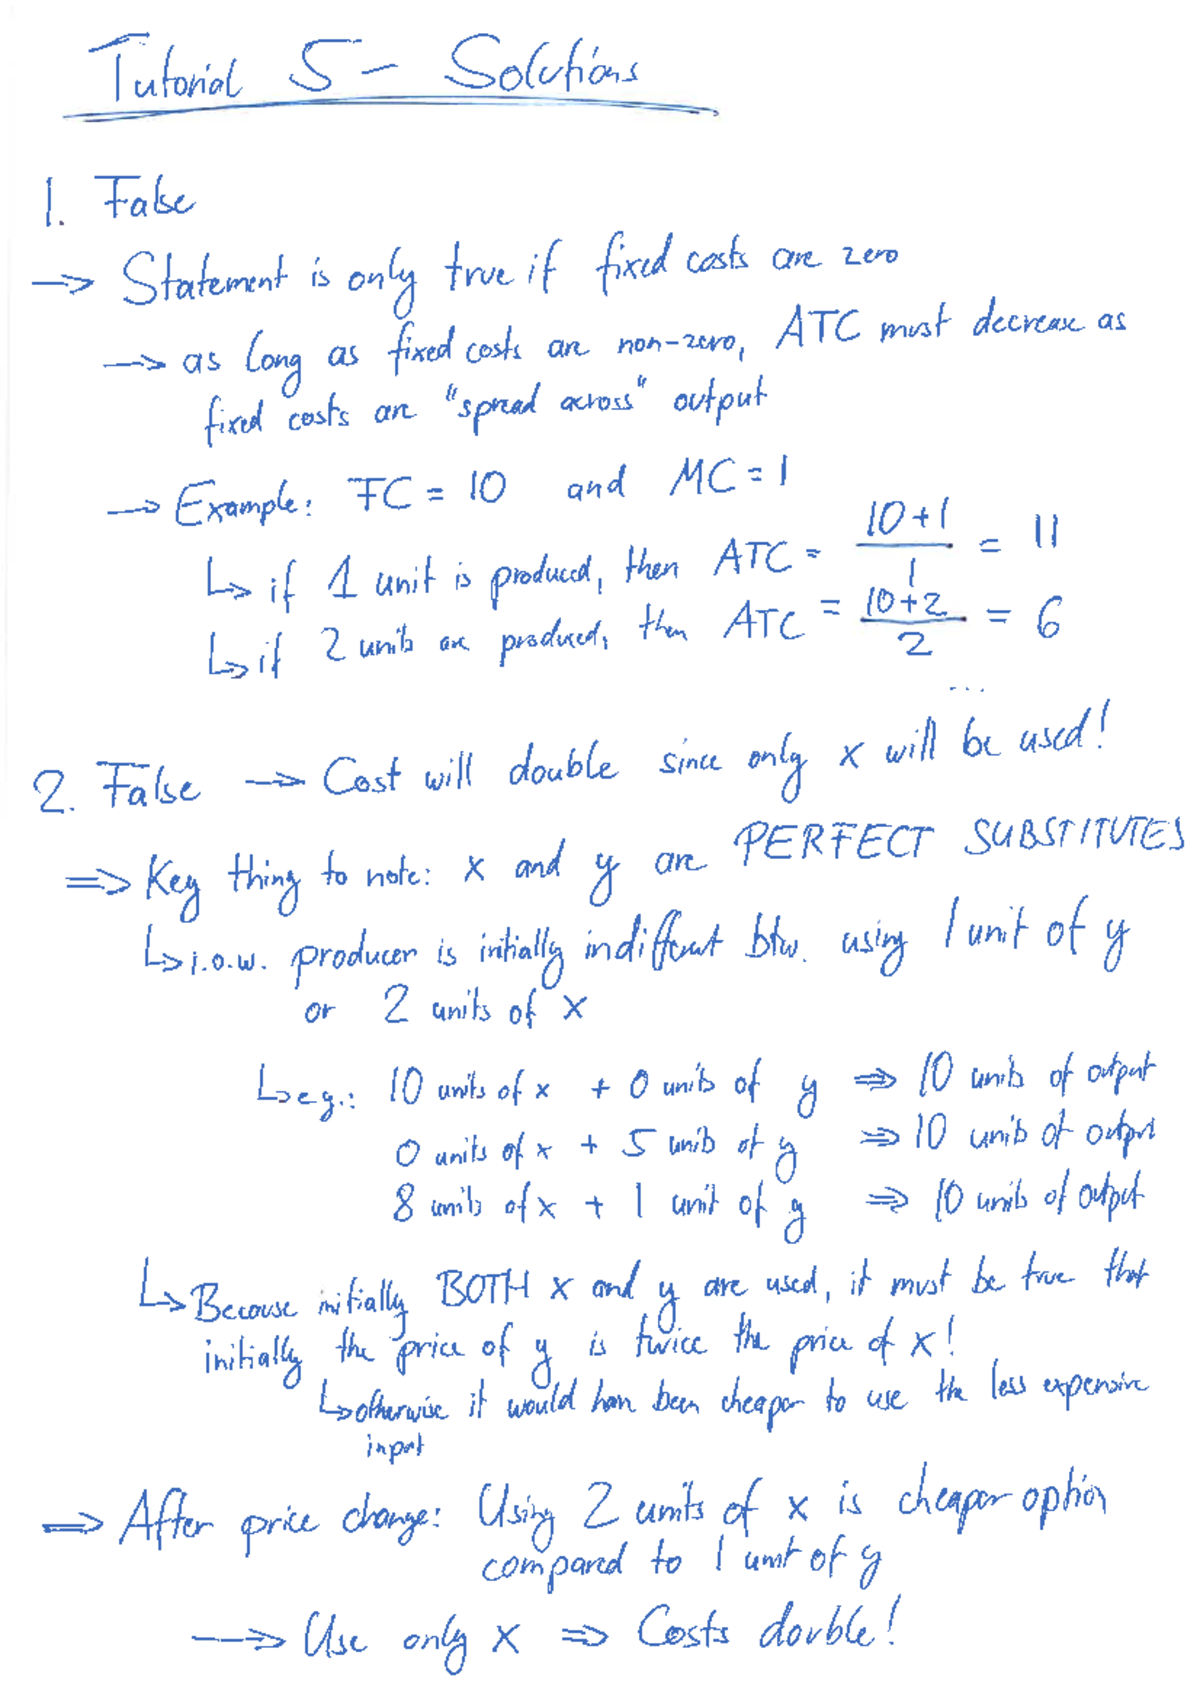 Tutorial 5 - Solutions
1. False
→ Statement is only true if fixed costs are zero
→ as long as fixed costs are non-zero, ATC must decrease as
fixed costs are "spread across" output
→ Example: FC = 10 and MC = 1
↳ if 1 unit is produced, then ATC = (10+1)/1 = 11
↳ if 2 units are produced, then ATC = (10+2)/2 = 6
...
2. False → Cost will double since only x will be used!
⇒ Key thing to note: x and y are PERFECT SUBSTITUTES
↳ i.o.w. producer is initially indifferent btw. using 1 unit of y
or 2 units of x
↳ e.g.: 10 units of x + 0 units of y ⇒ 10 units of output
0 units of x + 5 units of y ⇒ 10 units of output
8 units of x + 1 unit of y ⇒ 10 units of output
↳ Because initially BOTH x and y are used, it must be true that
initially the price of y is twice the price of x!
↳ otherwise it would have been cheaper to use the less expensive
input
⇒ After price change: Using 2 units of x is cheaper option
compared to 1 unit of y
→ Use only x ⇒ Costs double!